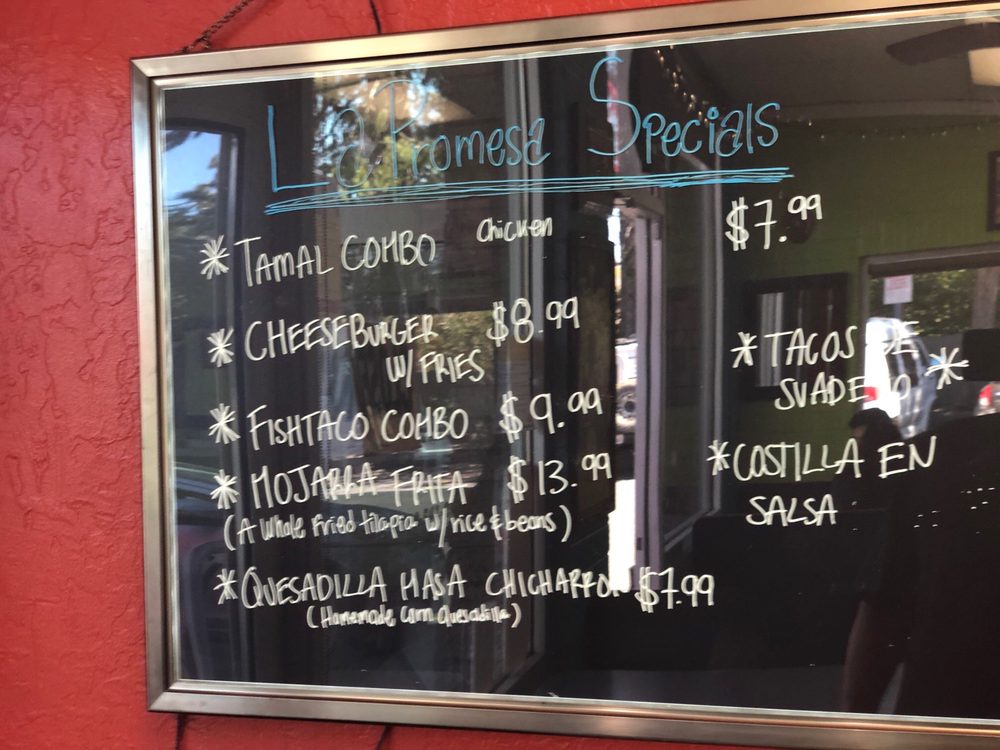 La Promesa Specials
* TAMAL COMBO Chicken $7.99
* CHEESEBURGER $8.99
W/ FRIES
* FISHTACO COMBO $9.99
* MOJARRA FRITA $13.99
(A Whole Fried tilapia w/rice & beans)
* QUESADILLA MASA CHICHARRON $7.99
(Homemade corn Quesadilla)
* TACOS DE
SUADERO *
* COSTILLA EN
SALSA